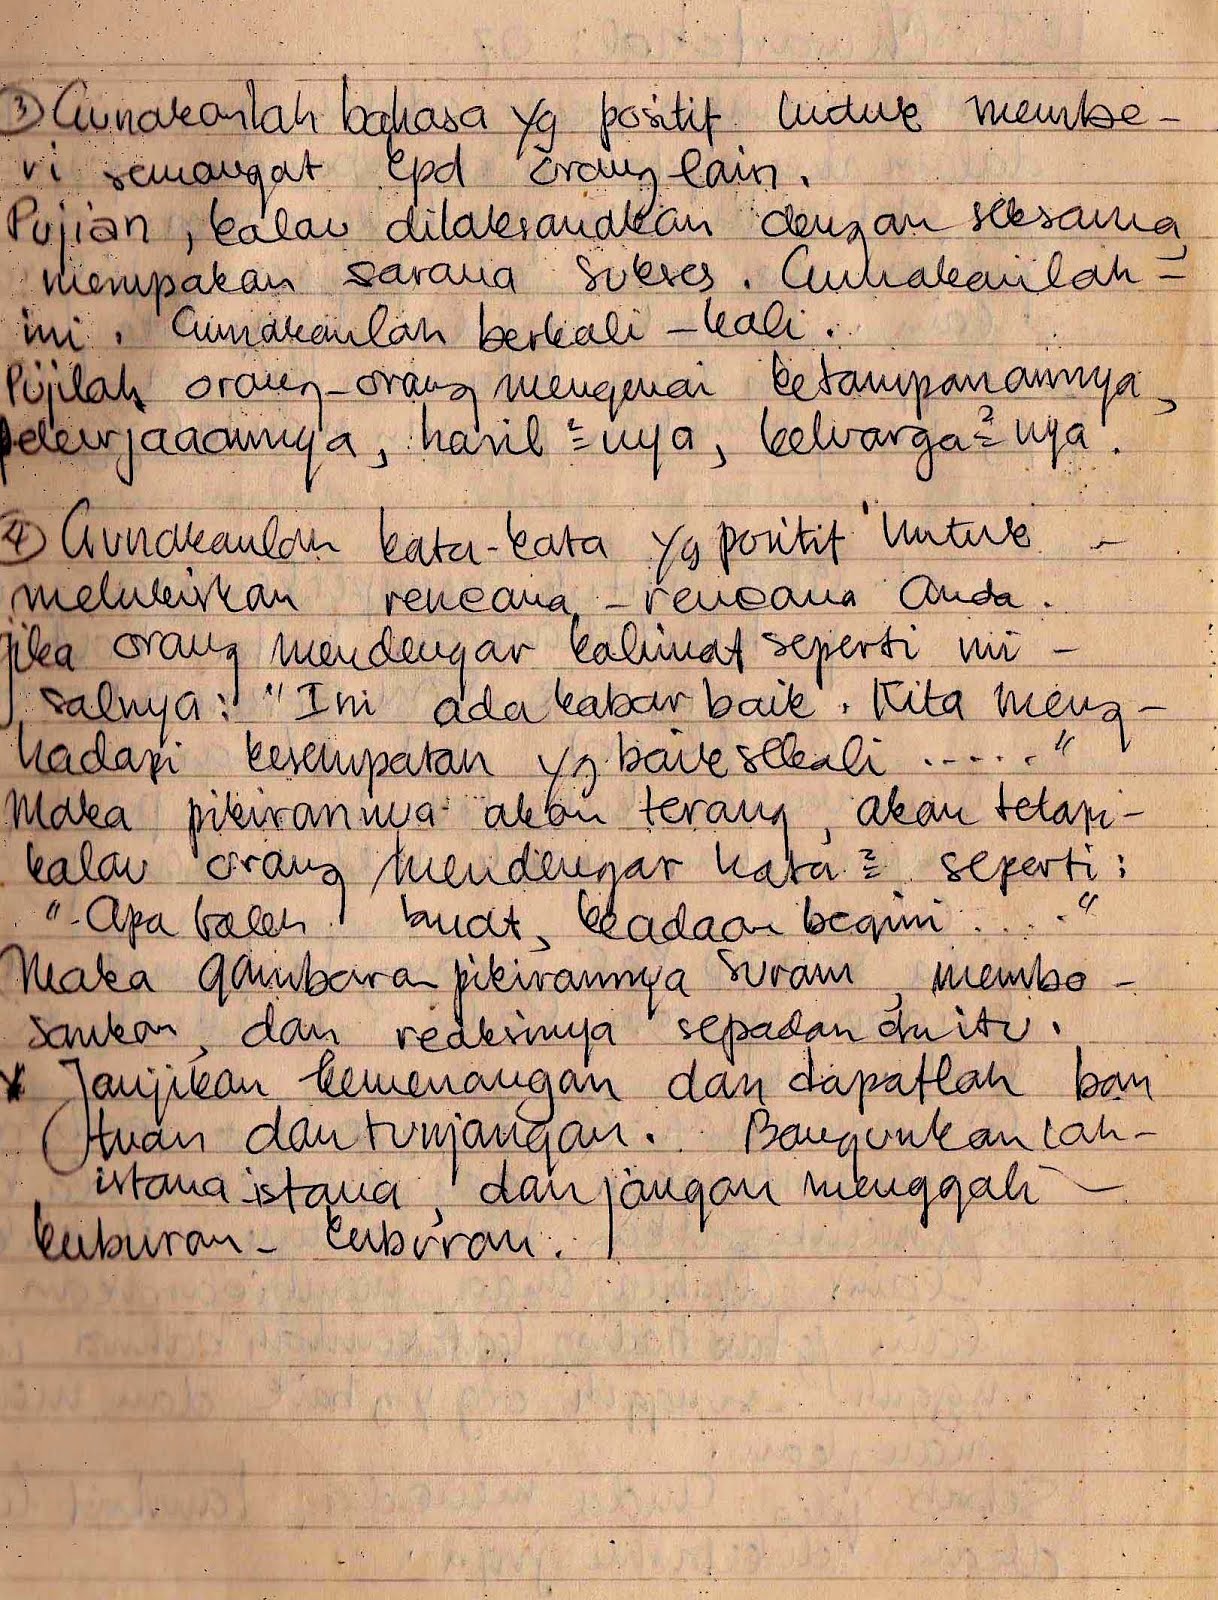 ③ Gunakanlah bahasa yg positif untuk membe-
ri semangat kpd orang lain.
Pujian, kalau dilaksanakan dengan seksama,
merupakan sarana sukses. Gunakanilah -
ini. Gunakanlah berkali-kali.
Pujilah orang-orang mengenai ketampanannya,
pekerjaaannya, hasil²nya, keluarga²nya.
④ Gunakanlah kata-kata yg positif untuk -
melukiskan rencana-rencana Anda.
jika orang mendengar kalimat seperti mi-
salnya: "Ini ada kabar baik. Kita meng-
hadapi kesempatan yg baik sekali ....."
Maka pikirannya akan terang, akan tetapi-
kalau orang mendengar kata² seperti:
"Apa boleh buat, keadaan begini ....."
Maka gambaran pikirannya suram, membo-
sankan, dan reaksinya sepadan dn itu.
* Janjikan kemenangan dan dapatlah ban
tuan dan tunjangan. Bangunkanlah-
istana-istana, dan jangan menggali -
kuburan-kuburan.